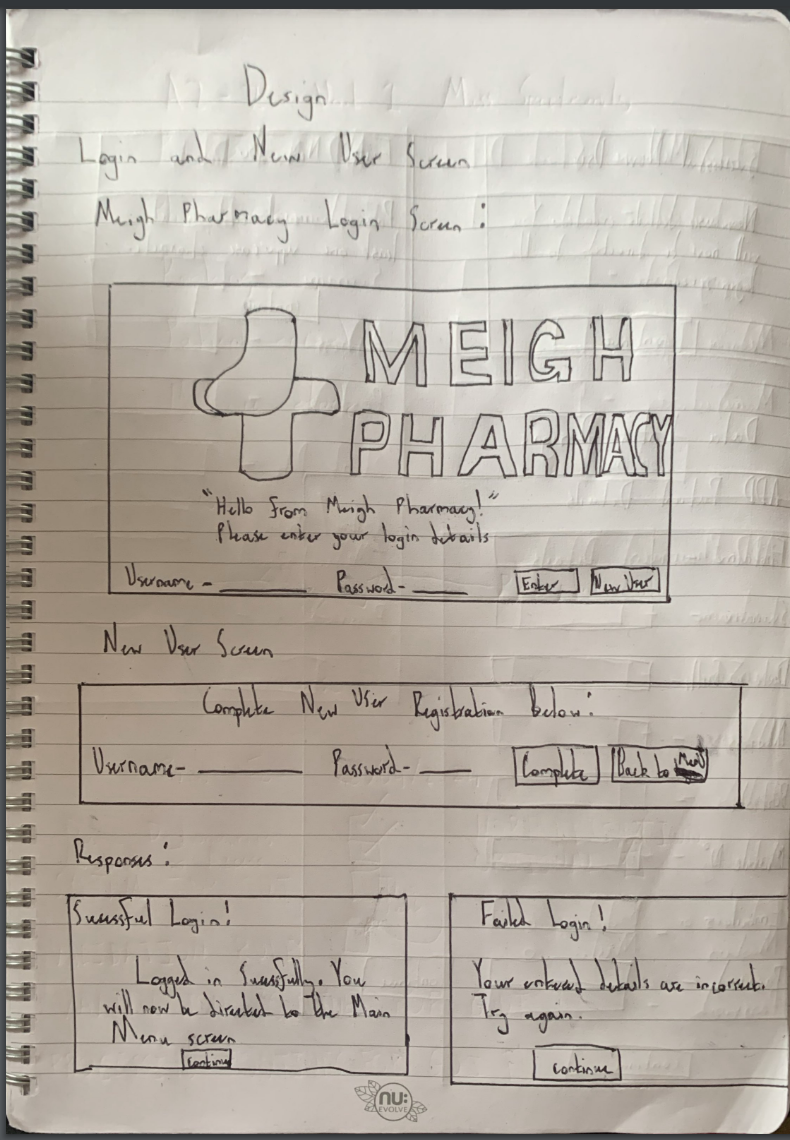 Design
Login and New User Screen
Meigh Pharmacy Login Screen:
MEIGH
PHARMACY
"Hello from Meigh Pharmacy!"
Please enter your login details
Username - Password - Enter New User
New User Screen
Complete New User Registration Below:
Username - Password - Complete Back to Menu
Responses:
Sucessful Login!
Logged in Sucessfully. You
will now be directed to the Main
Menu screen
Continue
Failed Login!
Your entered details are incorrect.
Try again.
Continue
nu:
EVOLVE